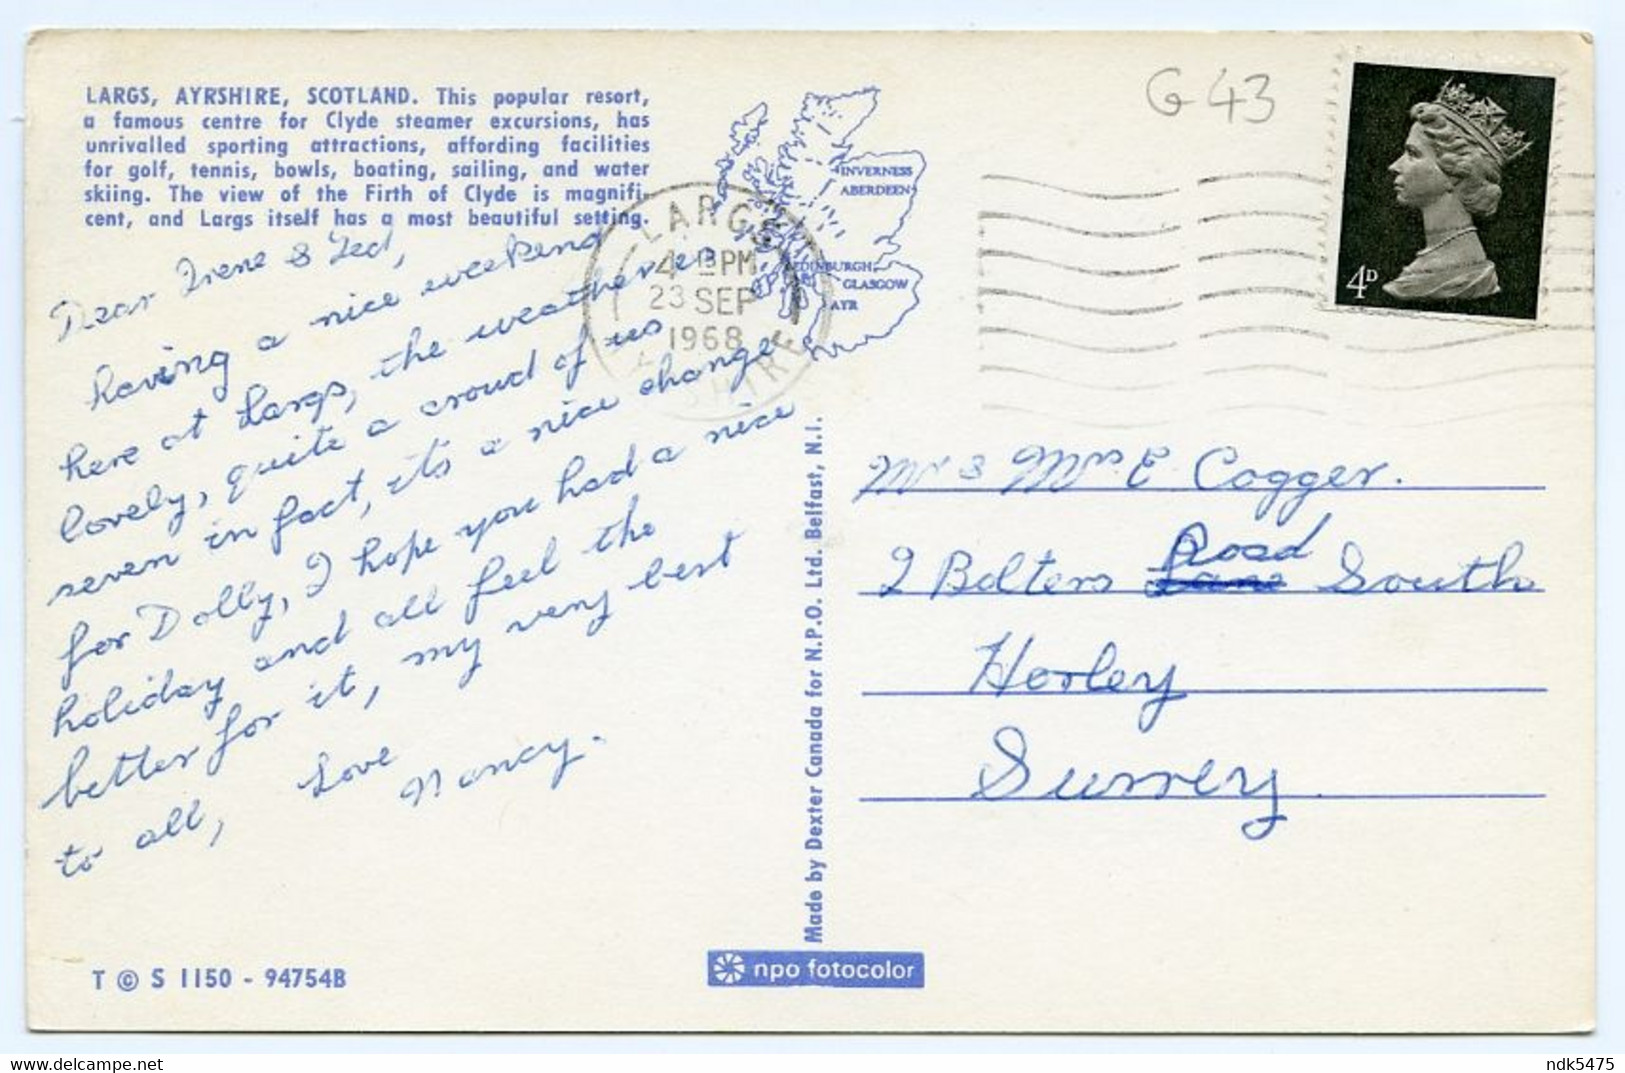 LARGS, AYRSHIRE, SCOTLAND. This popular resort,
a famous centre for Clyde steamer excursions, has
unrivalled sporting attractions, affording facilities
for golf, tennis, bowls, boating, sailing, and water
skiing. The view of the Firth of Clyde is magnifi-
cent, and Largs itself has a most beautiful setting.
Dear Irene & Ted,
having a nice weekend
here at Largs, the weather is
lovely, quite a crowd of us
seven in fact, it's a nice change
for Dolly, I hope you had a nice
holiday and all feel the
better for it, my very best
to all, Love
Nancy.
T © S 1150 - 94754B
INVERNESS
ABERDEEN
EDINBURGH
GLASGOW
AYR
LARGS
4 PM
23 SEP
1968
SHIRE
Made by Dexter Canada for N.P.O. Ltd. Belfast, N.I.
npo fotocolor
G 43
4D
Mr & Mrs E Cogger.
2 Bolters Lane Road South
Horley
Surrey
ndk5475